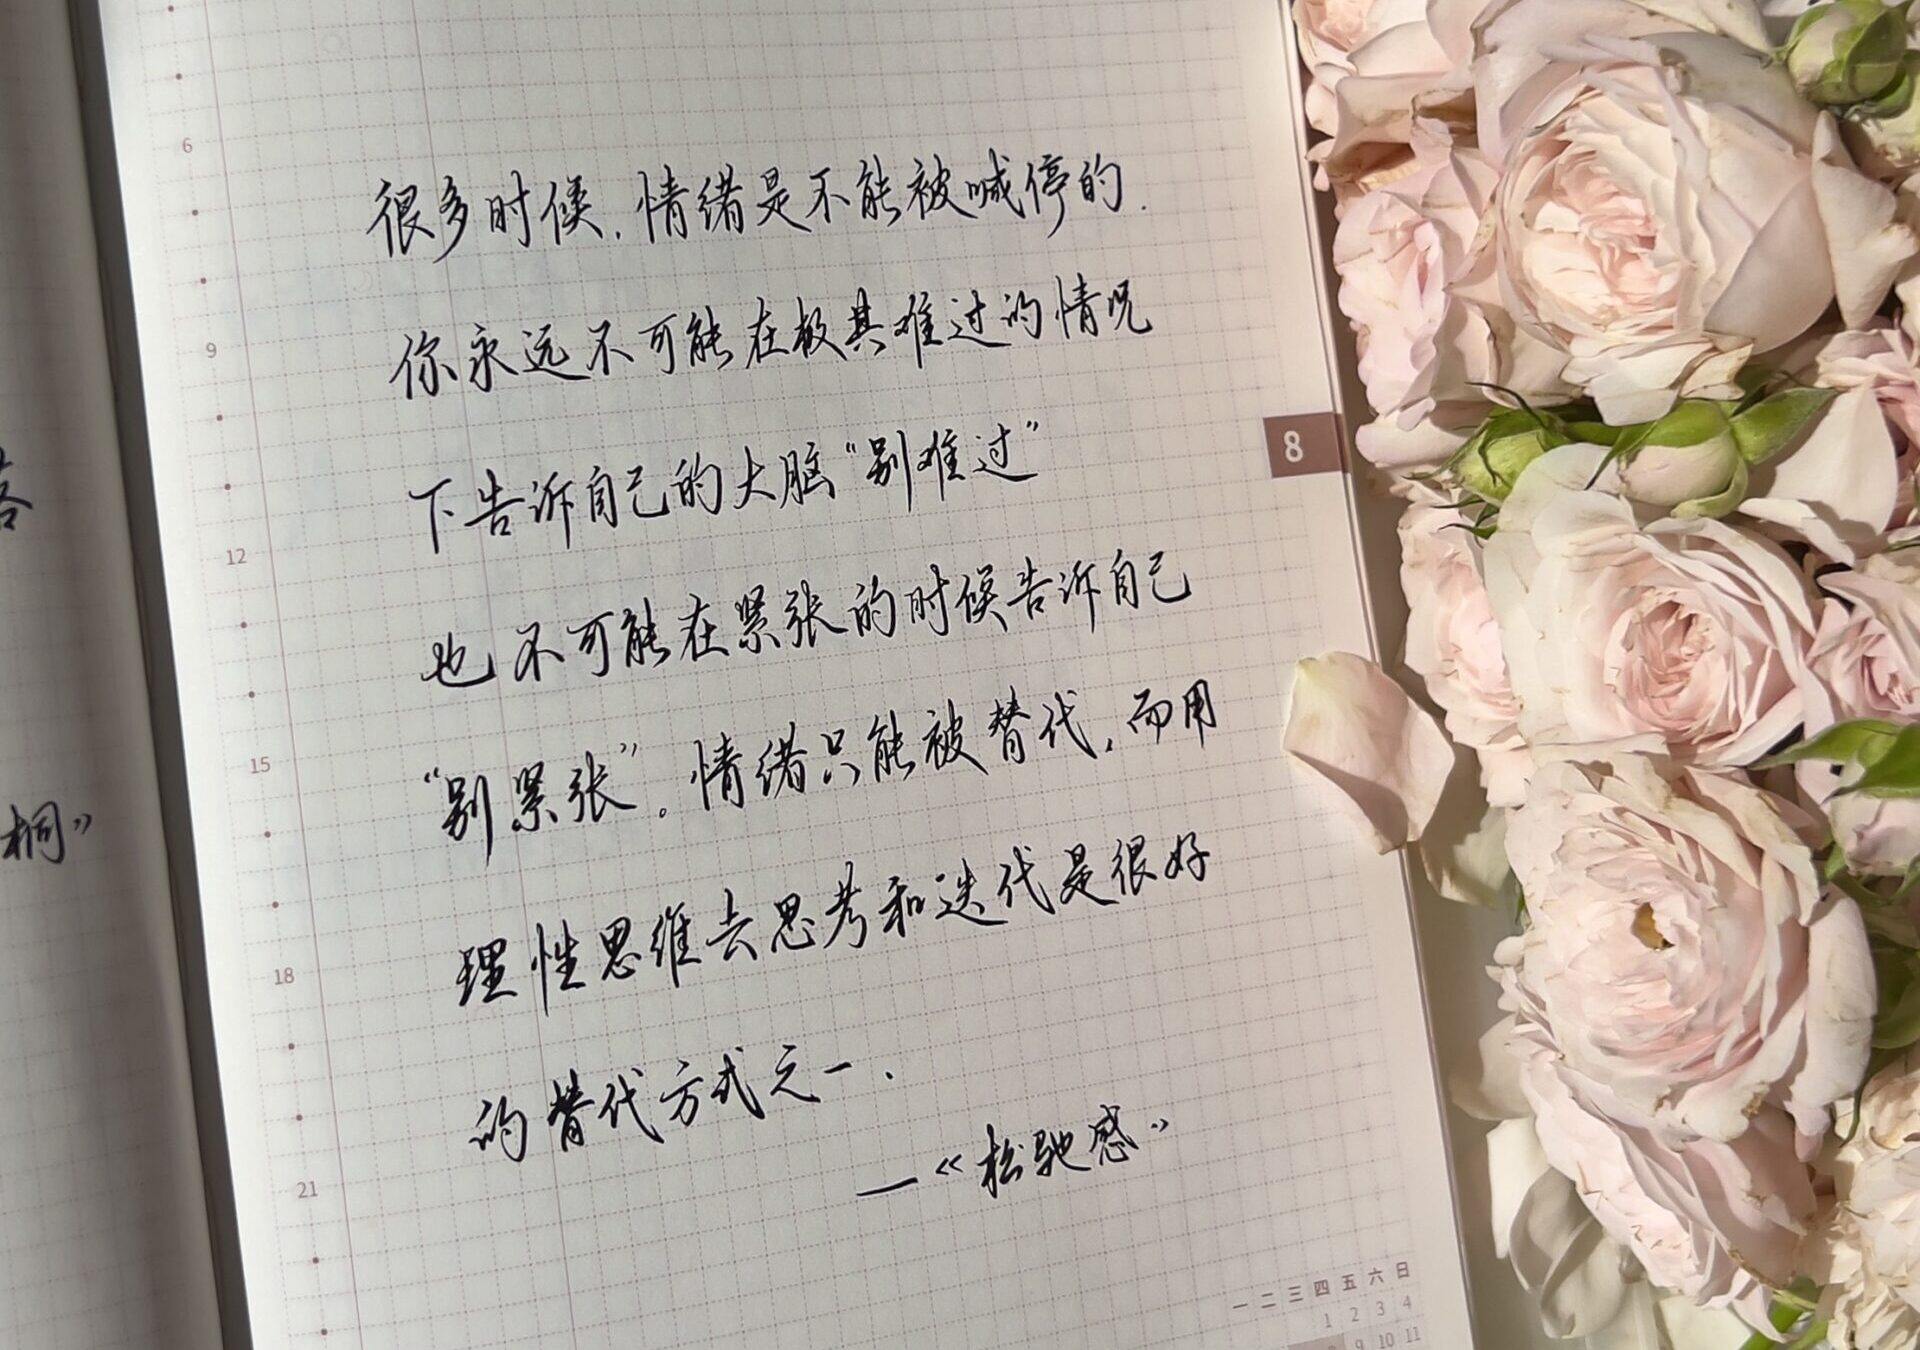 很多时候.情绪是不能被喊停的.
你永远不可能在极其难过的情况
下告诉自己的大脑“别难过”
也不可能在紧张的时候告诉自己
“别紧张”。情绪只能被替代,而用
理性思维去思考和迭代是很好
的替代方式之一.
—《松驰感》
桐》
6
9
12
15
18
21
8
一 二 三 四 五 六 日
1 2 3 4
9 10 11